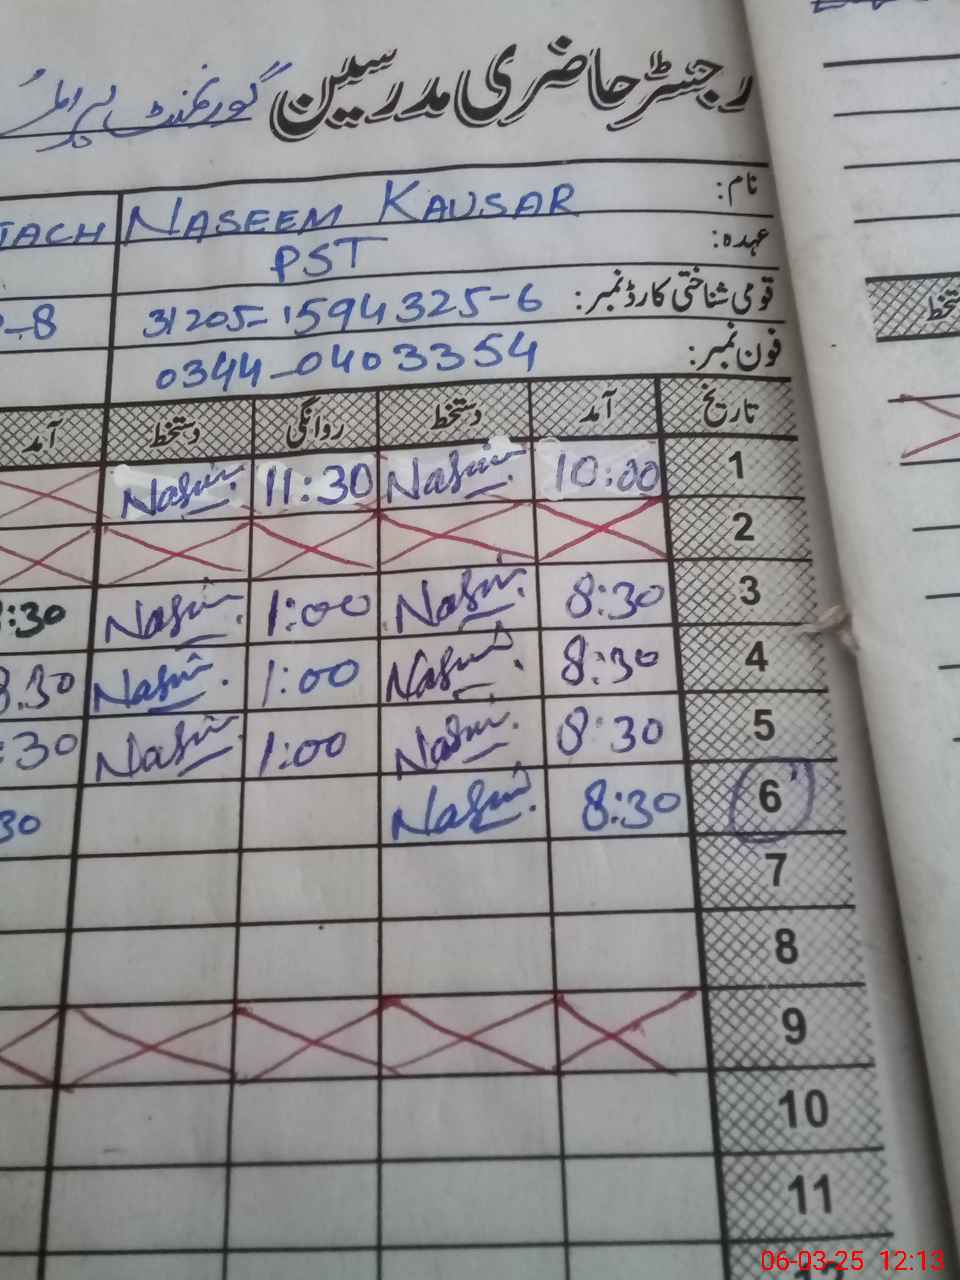 رجسٹر حاضری مدرسین گورنمنٹ
نام: NASEEM KAUSAR
عہدہ: PST
قومی شناختی کارڈ نمبر: 31205-1594325-6 -8
فون نمبر: 0344-0403354
تاریخ آمد دستخط روانگی دستخط آمد
1 10:00 Nasim 11:30 Nasim
2
3 8:30 Nasim 1:00 Nasim :30
4 8:30 Nasim 1:00 Nasim 8.30
5 8:30 Nasim 1:00 Nasim :30
6 8:30 Nasim 30
7
8
9
10
11
06-03-25 12:13